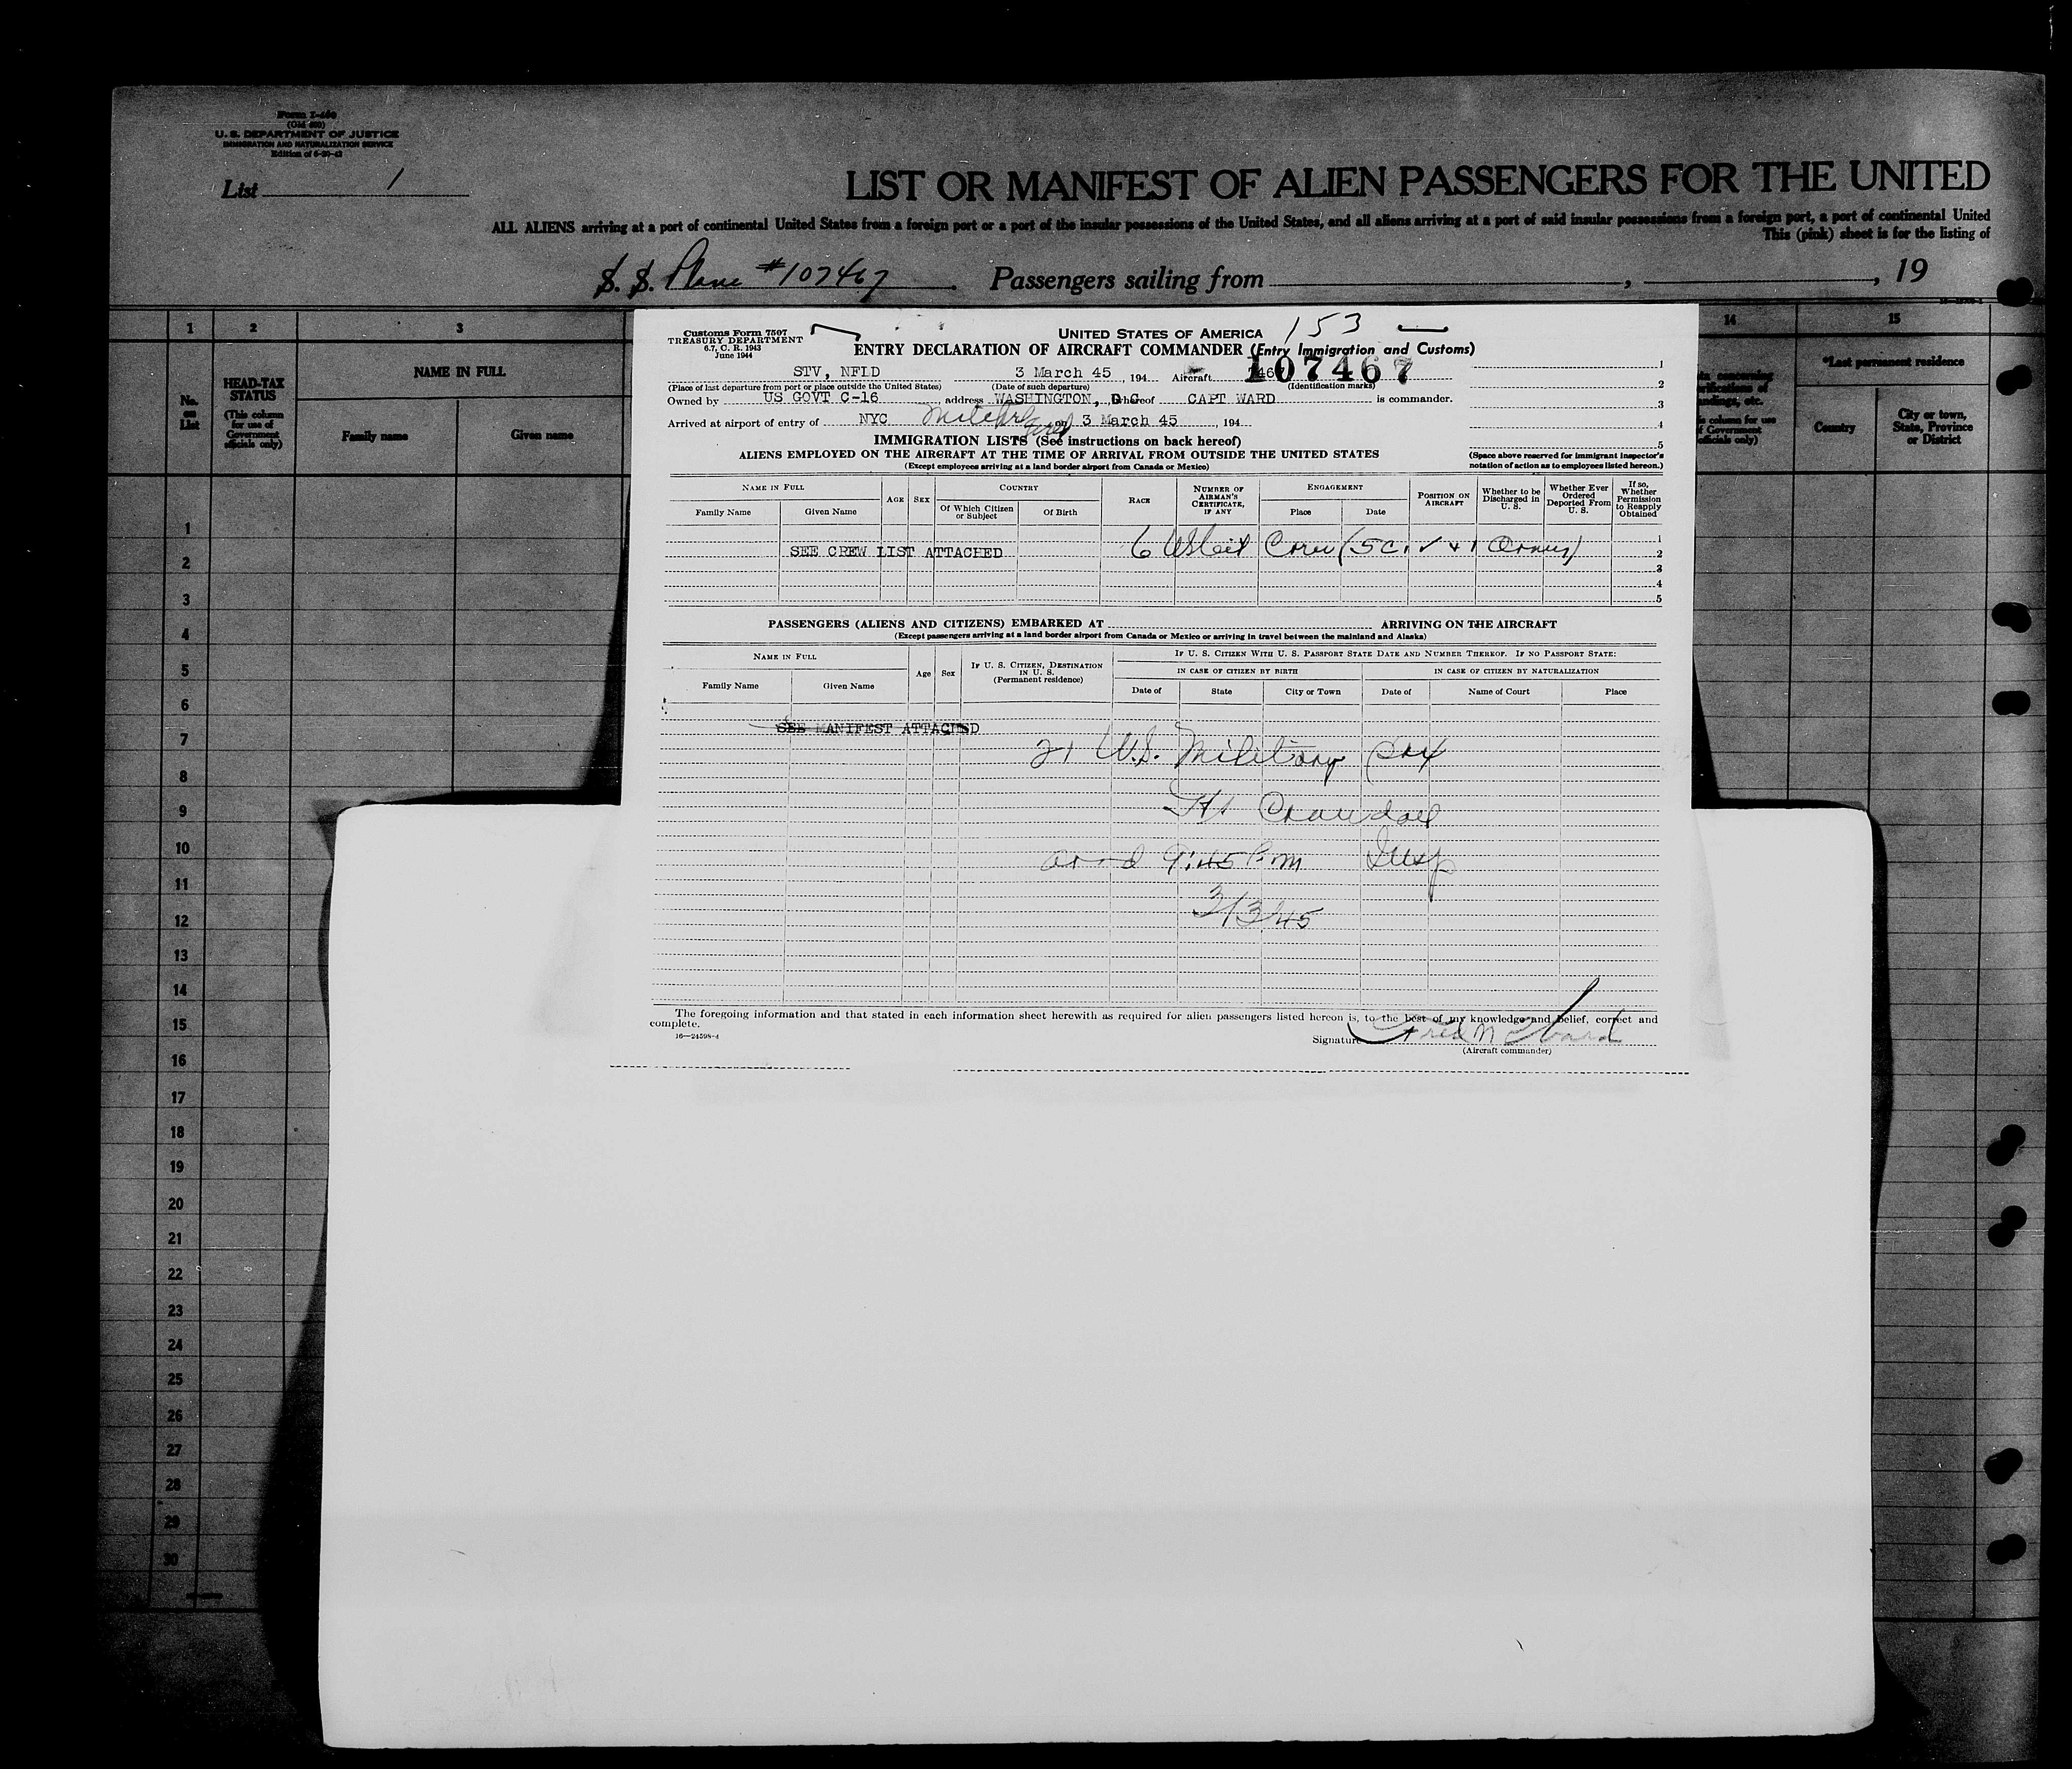 Form I-460
(Old 500)
U. S. DEPARTMENT OF JUSTICE
IMMIGRATION AND NATURALIZATION SERVICE
List 1
LIST OR MANIFEST OF ALIEN PASSENGERS FOR THE UNITED
ALL ALIENS arriving at a port of continental United States from a foreign port or a port of the insular possessions of the United States, and all aliens arriving at a port of said insular possessions from a foreign port, a port of continental United
This (pink) sheet is for the listing of
S. S. Plane #107467 Passengers sailing from , , 19
1 2 3 14 15
No. on List
HEAD-TAX STATUS
(This column for use of Government officials only)
NAME IN FULL
Family name Given name
*Last permanent residence
Country City or town, State, Province or District
1
2
3
4
5
6
7
8
9
10
11
12
13
14
15
16
17
18
19
20
21
22
23
24
25
26
27
28
29
30
Customs Form 7507
TREASURY DEPARTMENT
6.7, C. R. 1943
June 1944
UNITED STATES OF AMERICA 153
ENTRY DECLARATION OF AIRCRAFT COMMANDER (Entry Immigration and Customs)
STV, NFLD 3 March 45, 194 Aircraft 107467
(Place of last departure from port or place outside the United States) (Date of such departure) (Identification marks)
Owned by US GOVT C-16, address WASHINGTON, D C whereof CAPT WARD is commander.
Arrived at airport of entry of NYC on 3 March 45, 194
IMMIGRATION LISTS (See instructions on back hereof)
ALIENS EMPLOYED ON THE AIRCRAFT AT THE TIME OF ARRIVAL FROM OUTSIDE THE UNITED STATES
(Except employees arriving at a land border airport from Canada or Mexico)
1
2
3
4
5
(Space above reserved for immigrant inspector's notation of action as to employees listed hereon.)
NAME IN FULL
Family Name Given Name
AGE SEX
COUNTRY
Of Which Citizen or Subject Of Birth
RACE
NUMBER OF AIRMAN'S CERTIFICATE, IF ANY
ENGAGEMENT
Place Date
POSITION ON AIRCRAFT
Whether to be Discharged in U. S.
Whether Ever Ordered Deported From U. S.
If so, Whether Permission to Reapply Obtained
SEE CREW LIST ATTACHED
1
2
3
4
5
PASSENGERS (ALIENS AND CITIZENS) EMBARKED AT ARRIVING ON THE AIRCRAFT
(Except passengers arriving at a land border airport from Canada or Mexico or arriving in travel between the mainland and Alaska)
NAME IN FULL
Family Name Given Name
Age Sex
IF U. S. CITIZEN, DESTINATION IN U. S.
(Permanent residence)
IF U. S. CITIZEN WITH U. S. PASSPORT STATE DATE AND NUMBER THEREOF. IF NO PASSPORT STATE:
IN CASE OF CITIZEN BY BIRTH IN CASE OF CITIZEN BY NATURALIZATION
Date of State City or Town Date of Name of Court Place
SEE MANIFEST ATTACHED
21 U.S. Military
9:45 Pm Insp
3/3/45
The foregoing information and that stated in each information sheet herewith as required for alien passengers listed hereon is, to the best of my knowledge and belief, correct and
complete.
16—24598-4
Signature Fred N Ward
(Aircraft commander)